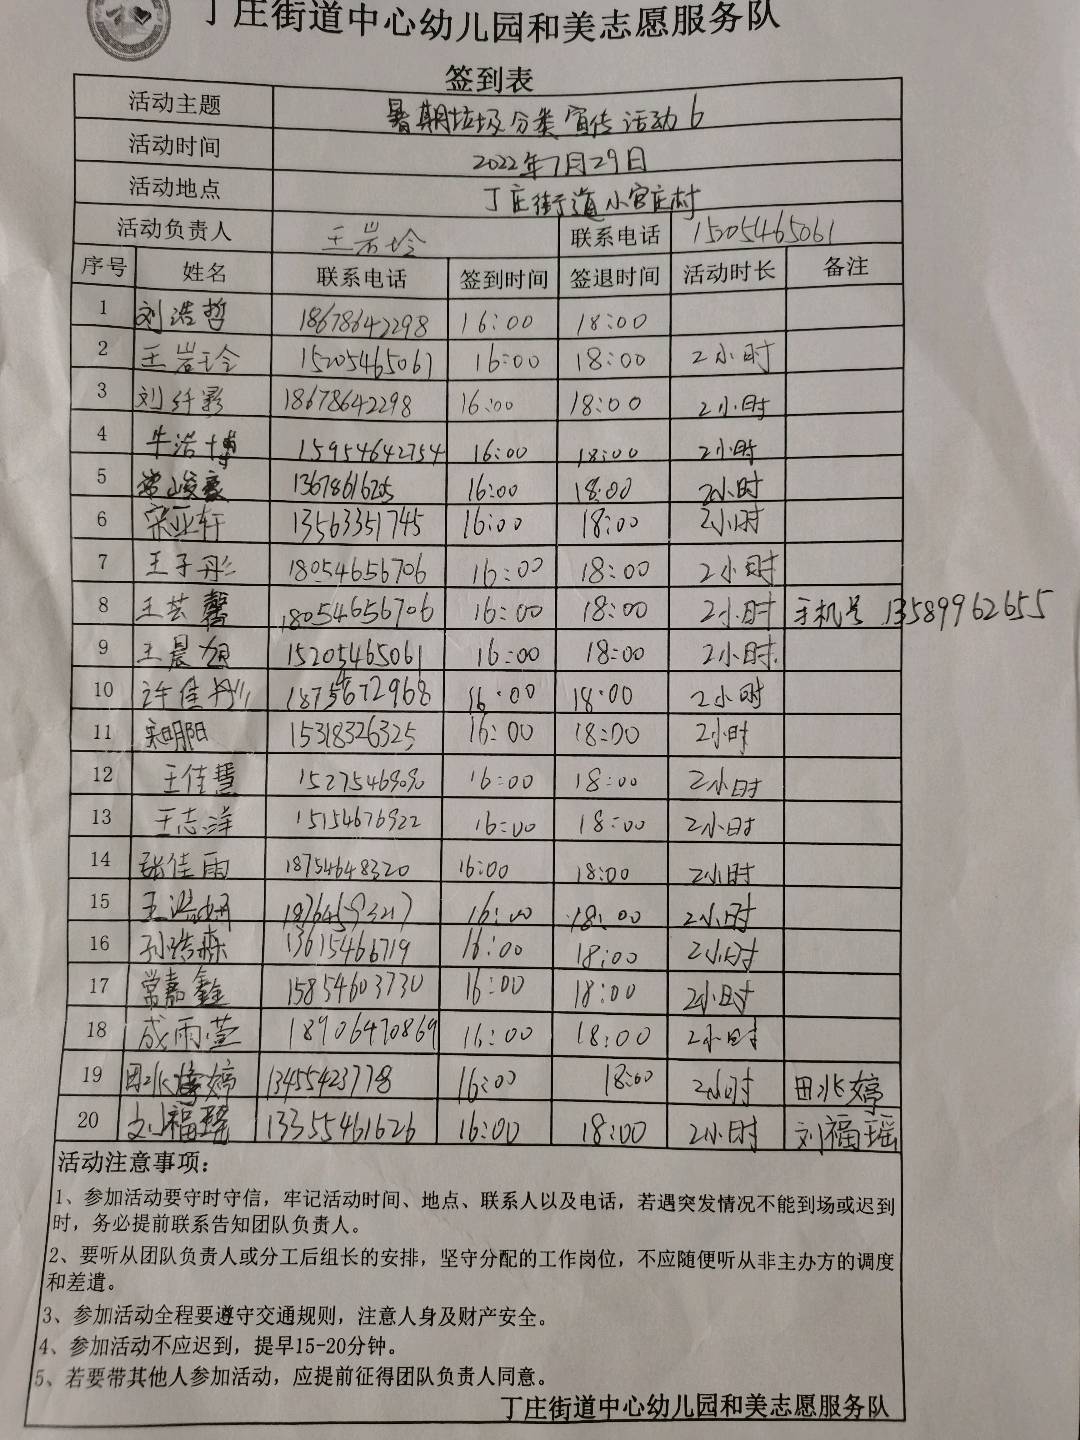 丁庄街道中心幼儿园和美志愿服务队
签到表
活动主题 暑期垃圾分类宣传活动6
活动时间 2022年7月29日
活动地点 丁庄街道小官庄村
活动负责人 王岩玲 联系电话 15205465061
序号 姓名 联系电话 签到时间 签退时间 活动时长 备注
1 刘浩哲 18678642298 16:00 18:00
2 王岩玲 15205465061 16:00 18:00 2小时
3 刘纤影 18678642298 16:00 18:00 2小时
4 牛浩博 15954642754 16:00 18:00 2小时
5 常峻豪 16:00 18:00 2小时
6 宋亚轩 13563351745 16:00 18:00 2小时
7 王子彤 18054656706 16:00 18:00 2小时
8 王芸馨 18054656706 16:00 18:00 2小时 手机号 13589962655
9 王晨旭 15205465061 16:00 18:00 2小时.
10 许佳彤 18754672968 16:00 18:00 2小时
11 15318326325 16:00 18:00 2小时
12 王佳慧 16:00 18:00 2小时
13 王志洋 15154676922 16:00 18:00 2小时
14 张佳雨 18754648320 16:00 18:00 2小时
15 王浩妍 18764593217 16:00 18:00 2小时
16 孙浩森 13615466719 16:00 18:00 2小时
17 常嘉鑫 15854603730 16:00 18:00 2小时
18 成雨萱 18906470869 16:00 18:00 2小时
19 田兆婷 13455423778 16:00 18:00 2小时 田兆婷
20 刘福瑶 13355461626 16:00 18:00 2小时 刘福瑶
活动注意事项：
1、参加活动要守时守信，牢记活动时间、地点、联系人以及电话，若遇突发情况不能到场或迟到
时，务必提前联系告知团队负责人。
2、要听从团队负责人或分工后组长的安排，坚守分配的工作岗位，不应随便听从非主办方的调度
和差遣。
3、参加活动全程要遵守交通规则，注意人身及财产安全。
4、参加活动不应迟到，提早15-20分钟。
5、若要带其他人参加活动，应提前征得团队负责人同意。
丁庄街道中心幼儿园和美志愿服务队